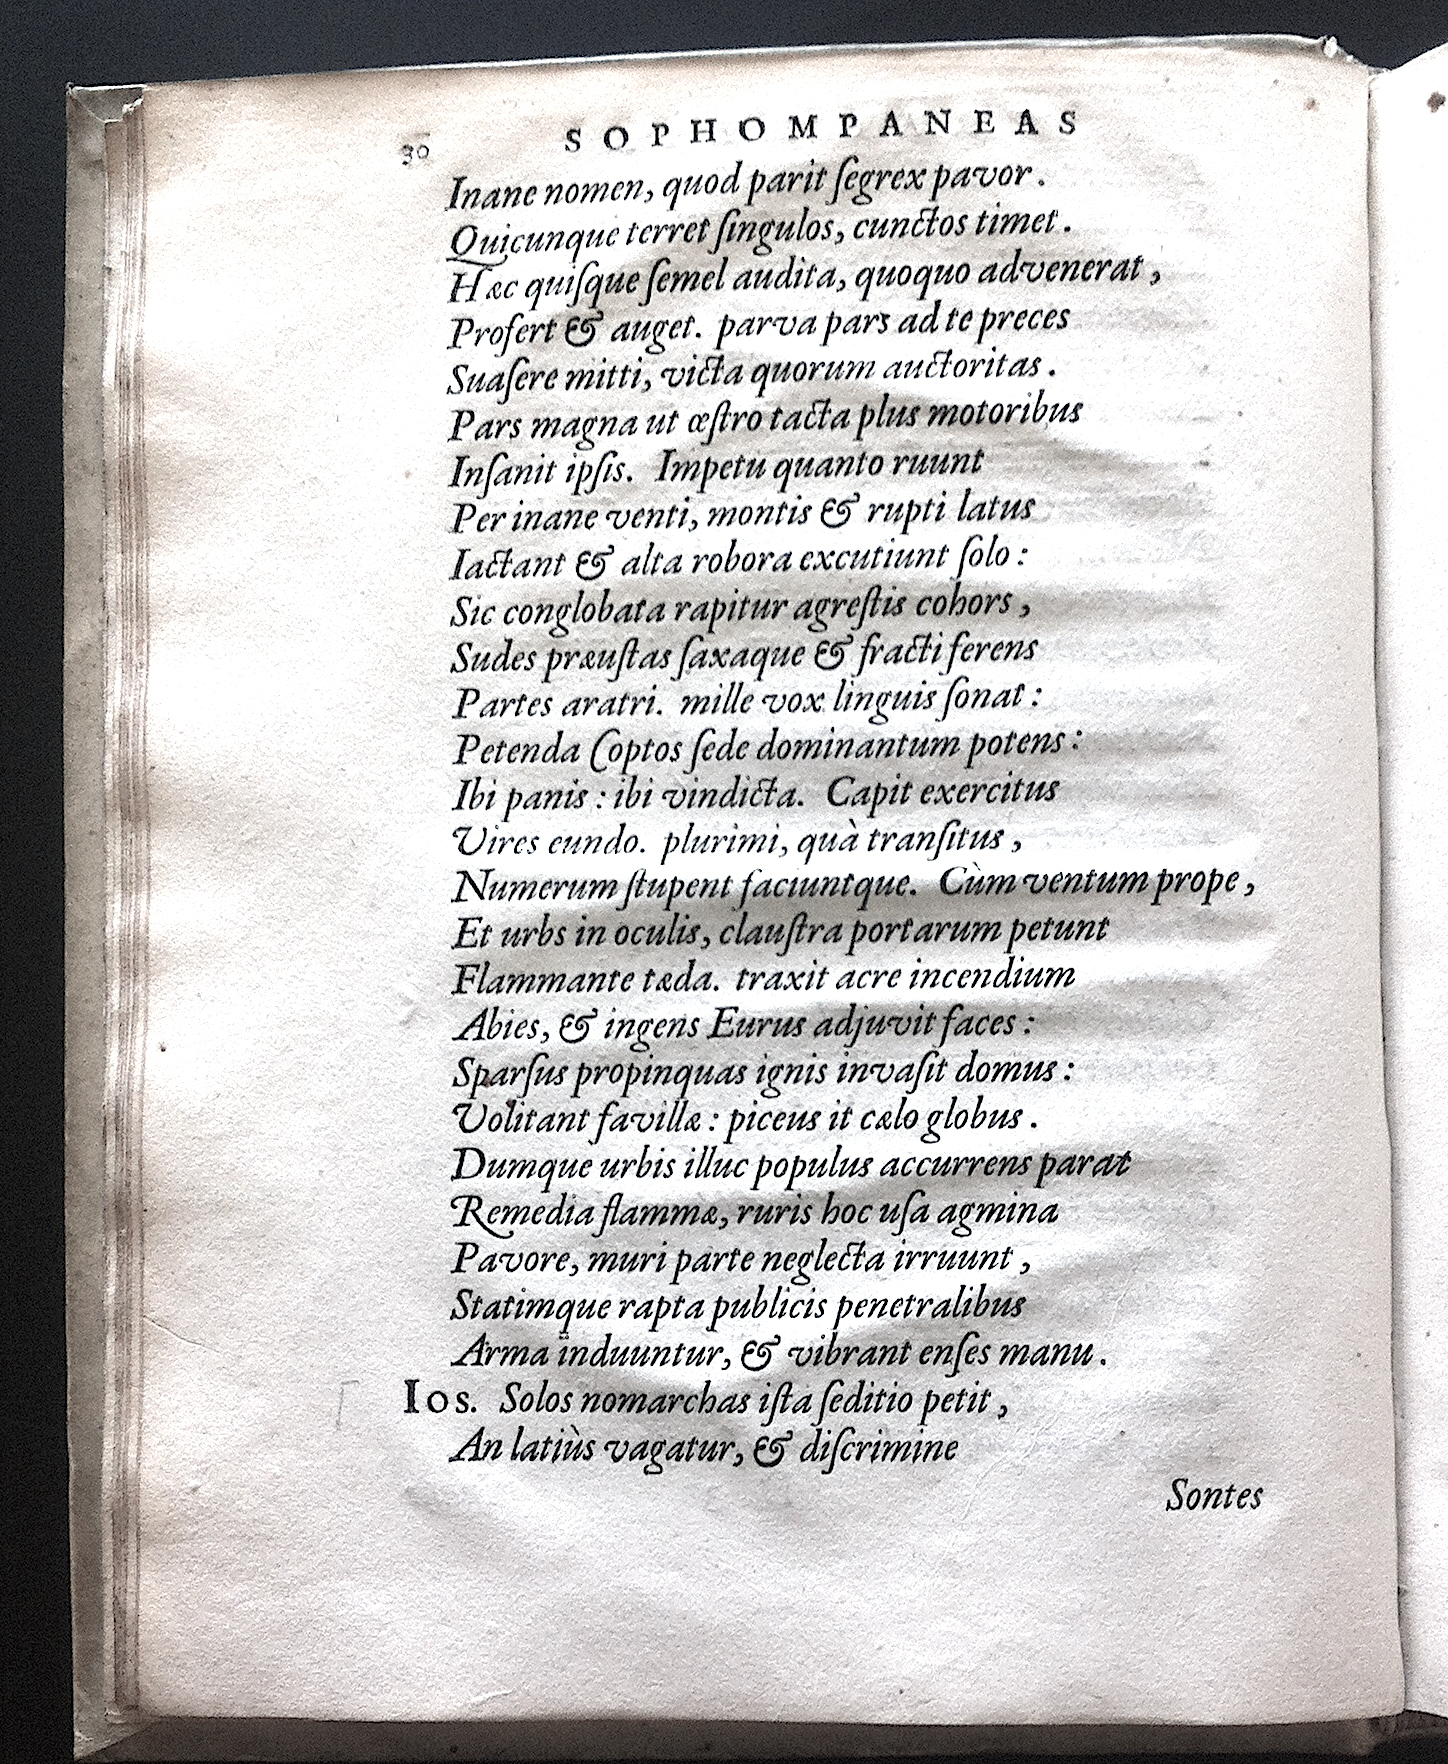 30 SOPHOMPANEAS
Inane nomen, quod parit ſegrex pavor.
Quicunque terret ſingulos, cunctos timet.
Hæc quiſque ſemel audita, quoquo advenerat,
Profert & auget. parva pars ad te preces
Suaſere mitti, victa quorum auctoritas.
Pars magna ut œſtro tacta plus motoribus
Inſanit ipſis. Impetu quanto ruunt
Per inane venti, montis & rupti latus
Iactant & alta robora excutiunt ſolo:
Sic conglobata rapitur agreſtis cohors,
Sudes præuſtas ſaxaque & fracti ferens
Partes aratri. mille vox linguis ſonat:
Petenda Coptos ſede dominantum potens:
Ibi panis: ibi vindicta. Capit exercitus
Vires eundo. plurimi, quà tranſitus,
Numerum ſtupent faciuntque. Cùm ventum prope,
Et urbs in oculis, clauſtra portarum petunt
Flammante tæda. traxit acre incendium
Abies, & ingens Eurus adjuvit faces:
Sparſus propinquas ignis invaſit domus:
Volitant favillæ: piceus it cælo globus.
Dumque urbis illuc populus accurrens parat
Remedia flammæ, ruris hoc uſa agmina
Pavore, muri parte neglecta irruunt,
Statimque rapta publicis penetralibus
Arma induuntur, & vibrant enſes manu.
Ios. Solos nomarchas iſta ſeditio petit,
An latiùs vagatur, & diſcrimine
Sontes